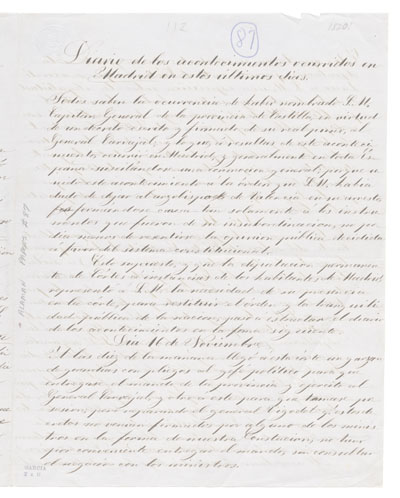 112
87
1820
Diario de los acontecimientos ocurridos en
Madrid en estos últimos días.
Todos saben la ocurrencia de haber nombrado S. M.
Capitan General de la provincia de Castilla, en virtud
de un decreto escrito y firmado de su real puño, al
General Carvajal, y lo que, a resultas de este aconteci-
miento, ocurrió en Madrid, y generalmente en toda Es-
paña
este acontecimiento a la órden que S. M. habia
dado de
tan solamente a los instru-
mentos
la opinion publica decidida
á favor del sistema constitucional.
Esto supuesto, y que la diputacion permanen-
te de Cortes á instancias de los habitantes de Madrid
representó á S. M. la necesidad de su presencia
en la corte, para restituir el órden y la tranquili-
dad publica de la nacion, paso a estractar el diario
de los acontecimientos en la forma siguiente.
Dia 16 de Noviembre
A las diez de la mañana llegó a esta corte un
de guardias con pliegos al gefe politico para que
entregase el mando de la provincia y ejercito al
General Carvajal, y otro a este para que tomase po-
sesion, pero reparando el general Vigodet que estos de-
cretos no venian firmados por alguno de los minis-
tros en la forma de nuestra Constitucion, no tuvo
por conveniente entregar el mando, sin consultar
el negocio con los ministros.
GARCIA